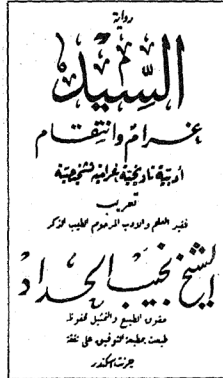 رواية
السيد
غرام وانتقام
أدبية تاريخية غرامية تشخيصية
تعريب
فقيد العلم والادب المرحوم الطيب الذكر
الشيخ نجيب الحداد
حقوق الطبع والتمثيل محفوظة
طبعت بمطبعة التوفيق على نفقة
جرجس اسكندر